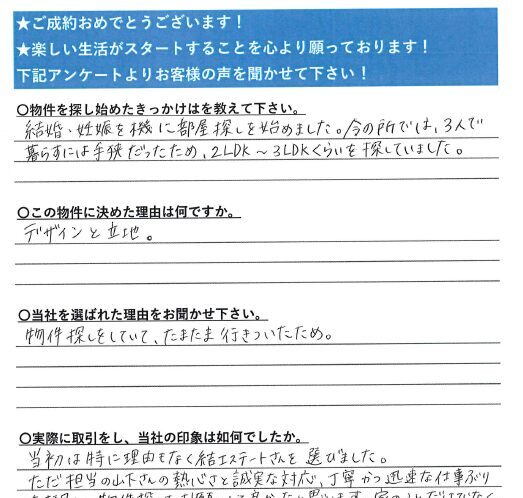 ★ご成約おめでとうございます！
★楽しい生活がスタートすることを心より願っております！
下記アンケートよりお客様の声を聞かせて下さい！
〇物件を探し始めたきっかけはを教えて下さい。
結婚・妊娠を機に部屋探しを始めました。今の所では、3人で
暮らすには手狭だったため、2LDK～3LDKくらいを探していました。
〇この物件に決めた理由は何ですか。
デザインと立地。
〇当社を選ばれた理由をお聞かせ下さい。
物件探しをしていて、たまたま行きついたため。
〇実際に取引をし、当社の印象は如何でしたか。
当初は特に理由もなく結エステートさんを選びました。
ただ担当の山下さんの熱心さと誠実な対応、丁寧かつ迅速な仕事ぶり